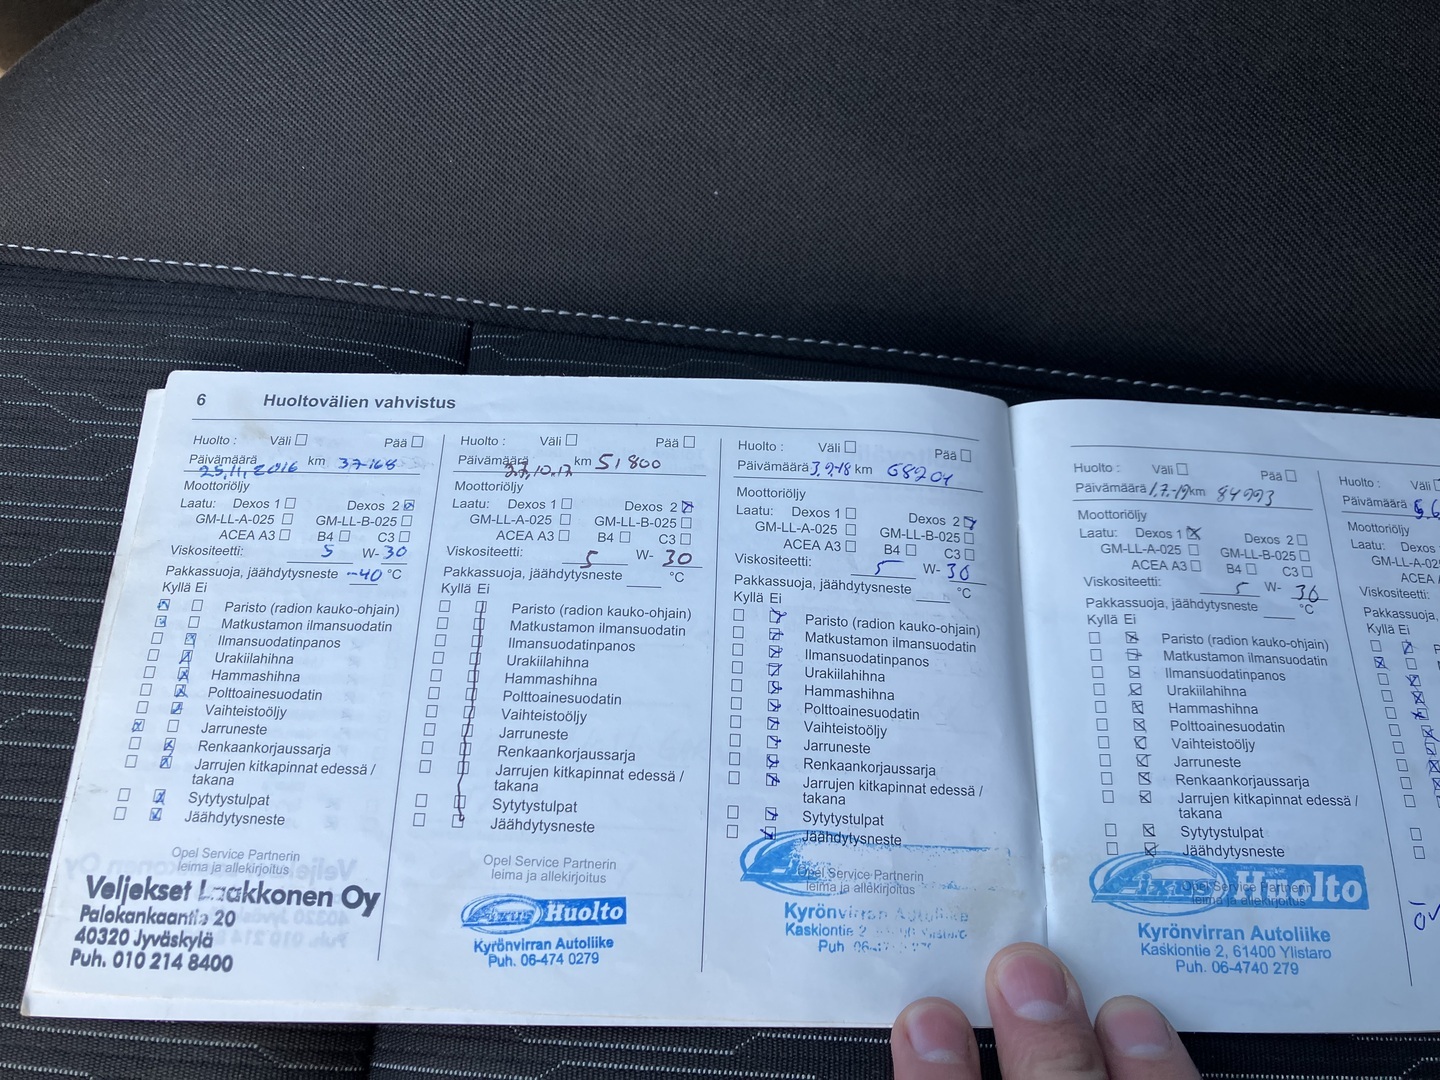 6 Huoltovälien vahvistus
Huolto : Väli Pää
Päivämäärä 25.11.2016 km 37168
Moottoriöljy
Laatu: Dexos 1 Dexos 2
GM-LL-A-025 GM-LL-B-025
ACEA A3 B4 C3
Viskositeetti: 5 W- 30
Pakkassuoja, jäähdytysneste -40 °C
Kyllä Ei
Paristo (radion kauko-ohjain)
Matkustamon ilmansuodatin
Ilmansuodatinpanos
Urakiilahihna
Hammashihna
Polttoainesuodatin
Vaihteistoöljy
Jarruneste
Renkaankorjaussarja
Jarrujen kitkapinnat edessä /
takana
Sytytystulpat
Jäähdytysneste
Opel Service Partnerin
leima ja allekirjoitus
Veljekset Laakkonen Oy
Palokankaantie 20
40320 Jyväskylä
Puh. 010 214 8400
Huolto : Väli Pää
Päivämäärä 27.10.17 km 51800
Moottoriöljy
Laatu: Dexos 1 Dexos 2
GM-LL-A-025 GM-LL-B-025
ACEA A3 B4 C3
Viskositeetti: 5 W- 30
Pakkassuoja, jäähdytysneste °C
Kyllä Ei
Paristo (radion kauko-ohjain)
Matkustamon ilmansuodatin
Ilmansuodatinpanos
Urakiilahihna
Hammashihna
Polttoainesuodatin
Vaihteistoöljy
Jarruneste
Renkaankorjaussarja
Jarrujen kitkapinnat edessä /
takana
Sytytystulpat
Jäähdytysneste
Opel Service Partnerin
leima ja allekirjoitus
Fixus Huolto
Kyrönvirran Autoliike
Puh. 06-474 0279
Huolto : Väli Pää
Päivämäärä 3.9.18 km 68201
Moottoriöljy
Laatu: Dexos 1 Dexos 2
GM-LL-A-025 GM-LL-B-025
ACEA A3 B4 C3
Viskositeetti: 5 W- 30
Pakkassuoja, jäähdytysneste °C
Kyllä Ei
Paristo (radion kauko-ohjain)
Matkustamon ilmansuodatin
Ilmansuodatinpanos
Urakiilahihna
Hammashihna
Polttoainesuodatin
Vaihteistoöljy
Jarruneste
Renkaankorjaussarja
Jarrujen kitkapinnat edessä /
takana
Sytytystulpat
Jäähdytysneste
Opel Service Partnerin
leima ja allekirjoitus
Kyrönvirran Autoliike
Kaskiontie 2
Puh
Huolto : Väli Pää
Päivämäärä 1.7.-19 km 84993
Moottoriöljy
Laatu: Dexos 1 Dexos 2
GM-LL-A-025 GM-LL-B-025
ACEA A3 B4 C3
Viskositeetti: 5 W- 30
Pakkassuoja, jäähdytysneste °C
Kyllä Ei
Paristo (radion kauko-ohjain)
Matkustamon ilmansuodatin
Ilmansuodatinpanos
Urakiilahihna
Hammashihna
Polttoainesuodatin
Vaihteistoöljy
Jarruneste
Renkaankorjaussarja
Jarrujen kitkapinnat edessä /
takana
Sytytystulpat
Jäähdytysneste
Opel Service Partnerin
leima ja allekirjoitus
Fixus Huolto
Kyrönvirran Autoliike
Kaskiontie 2, 61400 Ylistaro
Puh. 06-4740 279
Huolto : Väli
Päivämäärä
Moottoriöljy
Laatu: Dexos
GM-LL-A-02
ACEA
Viskositeetti:
Pakkassuoja,
Kyllä Ei